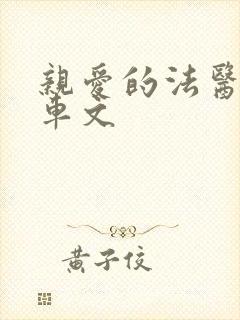 親愛的法醫
車文
黃子佼